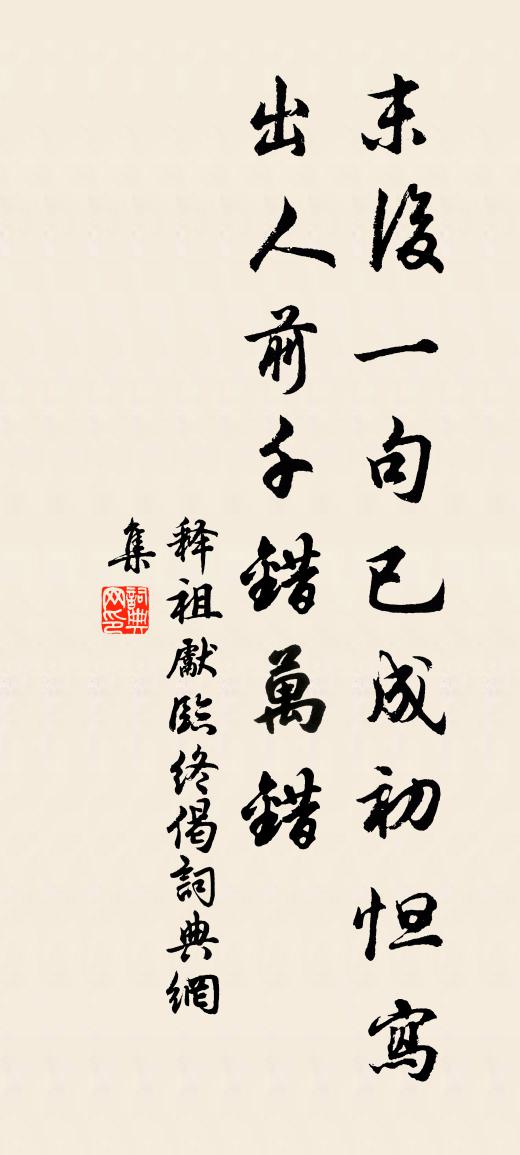 末後一句已成初怛寫
出人前千錯萬錯
释祖獻臨终偈詞典網
集
詞典网印